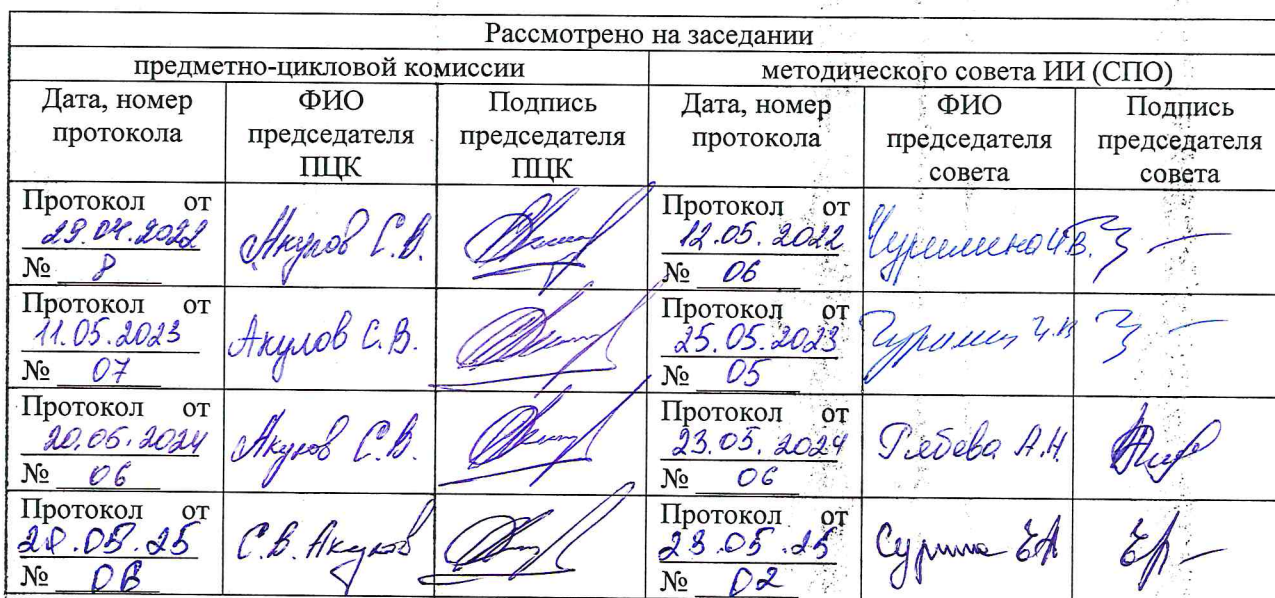 Рассмотрено на заседании
предметно-цикловой комиссии
методического совета ИИ (СПО)
Дата, номер протокола
ФИО председателя ПЦК
Подпись председателя ПЦК
Дата, номер протокола
ФИО председателя совета
Подпись председателя совета
Протокол от
29.04.2022
№ 8
Акулов С.В.
Протокол от
12.05.2022
№ 06
Протокол от
11.05.2023
№ 07
Акулов С.В.
Протокол от
25.05.2023
№ 05
Протокол от
20.05.2024
№ 06
Акулов С.В.
Протокол от
23.05.2024
№ 06
А.Н.
Протокол от
.05.25
№
С.В. Акулов
Протокол от
23.05.25
№ 02
Сурина ЕА